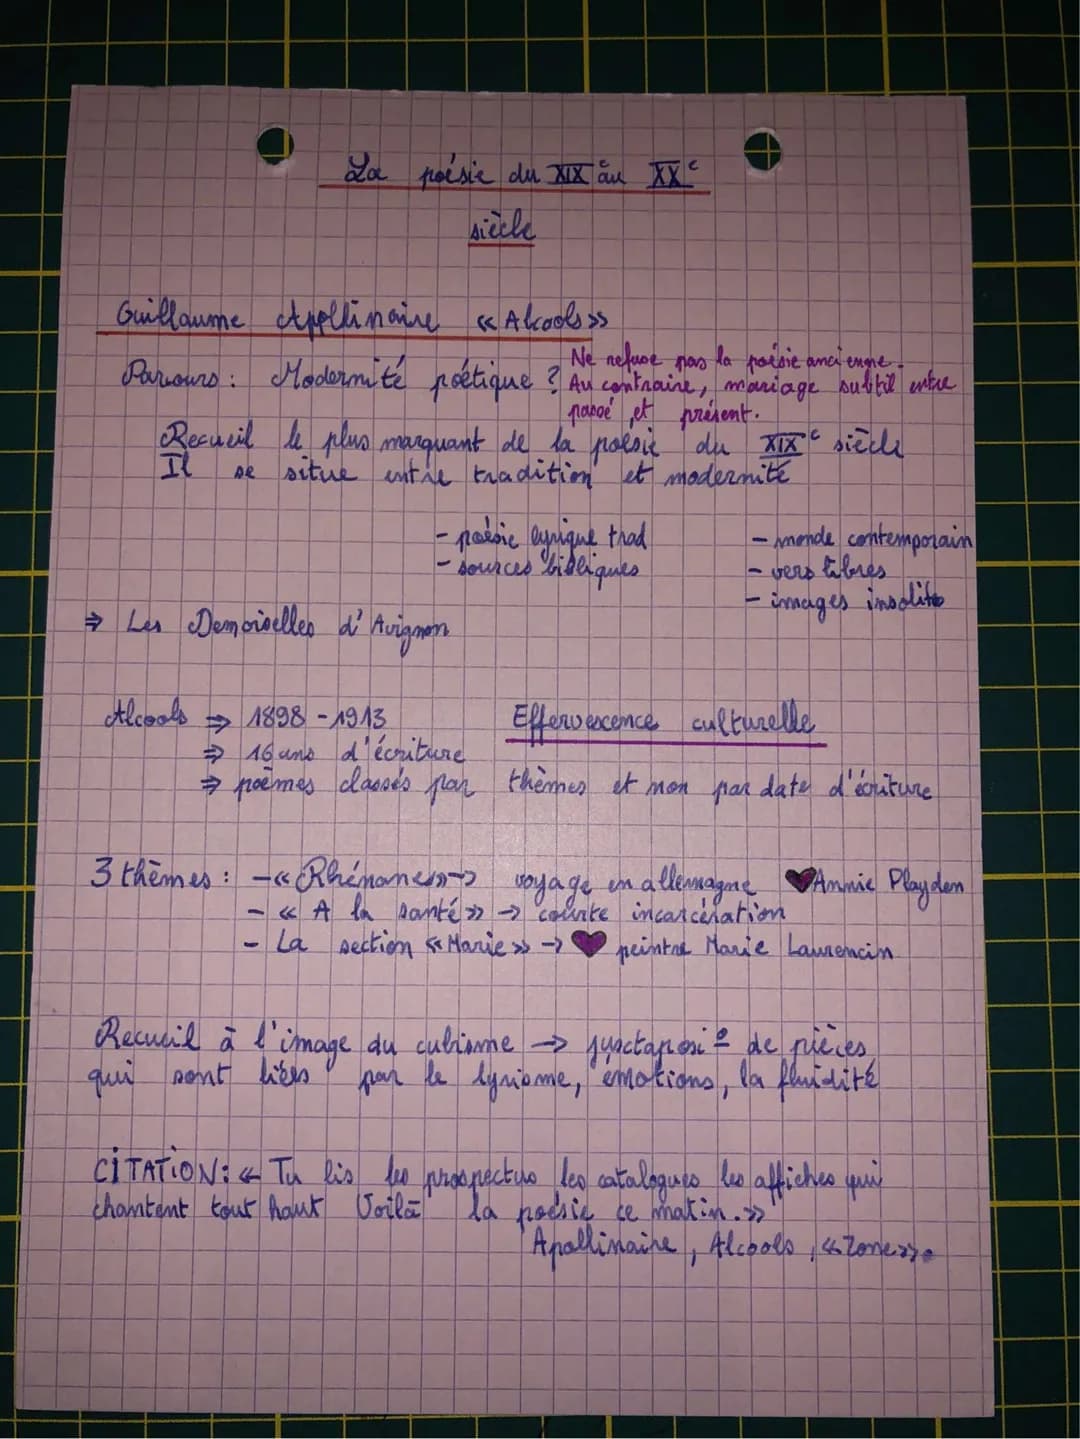 La poésie du XIXe au XXe
siècle
Guillaume Apollinaire « Alcools »
Parcours : Modernité poétique ?
Ne refuse pas la poésie ancienne.
Au contraire, mariage subtil entre
passé et présent.
Recueil le plus marquant de la poésie du XIXe siècle
Il se situe entre tradition et modernité
- poésie lyrique trad
- sources bibliques
- monde contemporain
- vers libres
- images insolites
⇒ Les Demoiselles d'Avignon
Alcools ⇒ 1898 - 1913
Effervescence culturelle
⇒ 16 ans d'écriture
⇒ poèmes classés par thèmes et non par date d'écriture
3 thèmes : - « Rhénanes » → voyage en allemagne ♥ Annie Playden
- « A la santé » → courte incarcération
- La section « Marie » → ♥ peintre Marie Laurencin
Recueil à l'image du cubisme → juxctaposi° de pièces
qui sont liées par le lyrisme, émotions, la fluidité
CITATION : « Tu lis les prospectus les catalogues les affiches qui
chantent tout haut Voilà la poésie ce matin. »
Apollinaire, Alcools, « Zone ».